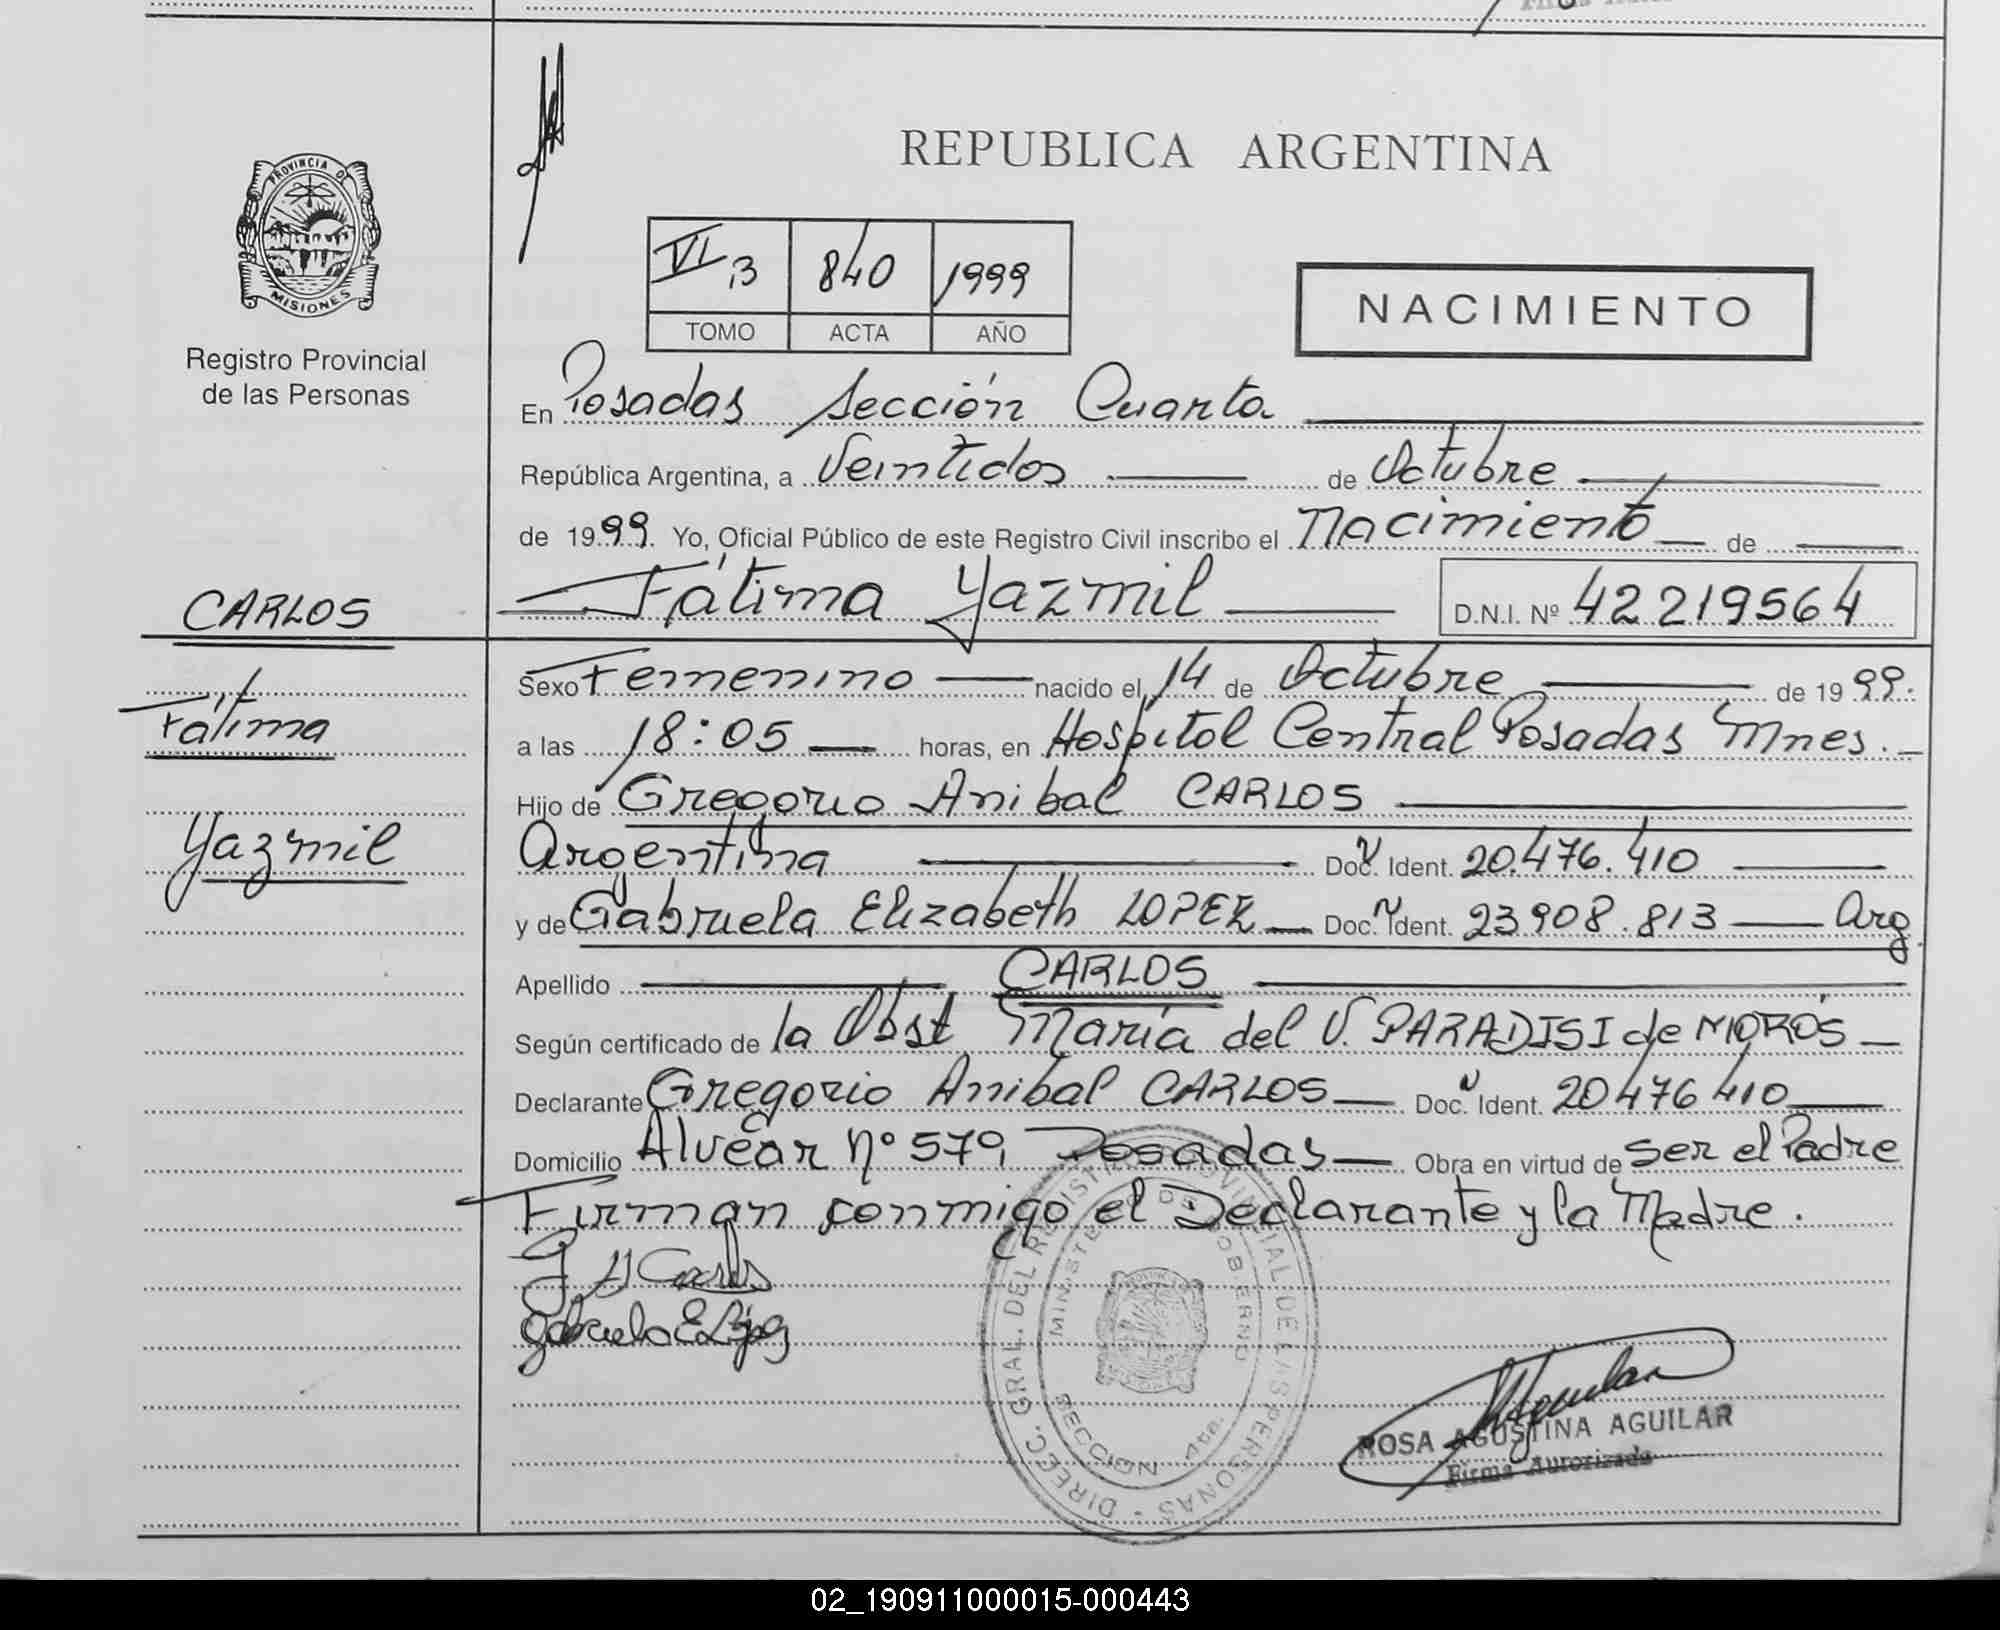 PROVINCIA DE
MISIONES
Registro Provincial
de las Personas
CARLOS
Fátima
Yazmil
REPUBLICA ARGENTINA
VI B 840 1999
TOMO ACTA AÑO
NACIMIENTO
En Posadas Sección Cuarta
República Argentina, a Veintidos de Octubre
de 1999. Yo, Oficial Público de este Registro Civil inscribo el Nacimiento de
Fátima Yazmil D.N.I. Nº 42 219564
Sexo Femenino nacido el 14 de Octubre de 1999.
a las 18:05 horas, en Hospital Central Posadas Mnes.
Hijo de Gregorio Anibal CARLOS
Argentina Doc. Ident. 20.476.410
y de Gabriela Elizabeth LOPEZ Doc. Ident. 23908.813 Arg.
Apellido CARLOS
Según certificado de la Obst María del V. PARADISI de MOROS
Declarante Gregorio Anibal CARLOS Doc. Ident. 20476410
Domicilio Alvear Nº 579, Posadas Obra en virtud de ser el Padre
Firman conmigo el Declarante y la Madre.
G A Carlos
Gabriela E López
DIREC. GRAL. DEL REGISTRO PROVINCIAL DE LAS PERSONAS
MINISTERIO DE GOBIERNO
SECCION 4ta.
ROSA AGUSTINA AGUILAR
Firma Autorizada
02_190911000015-000443